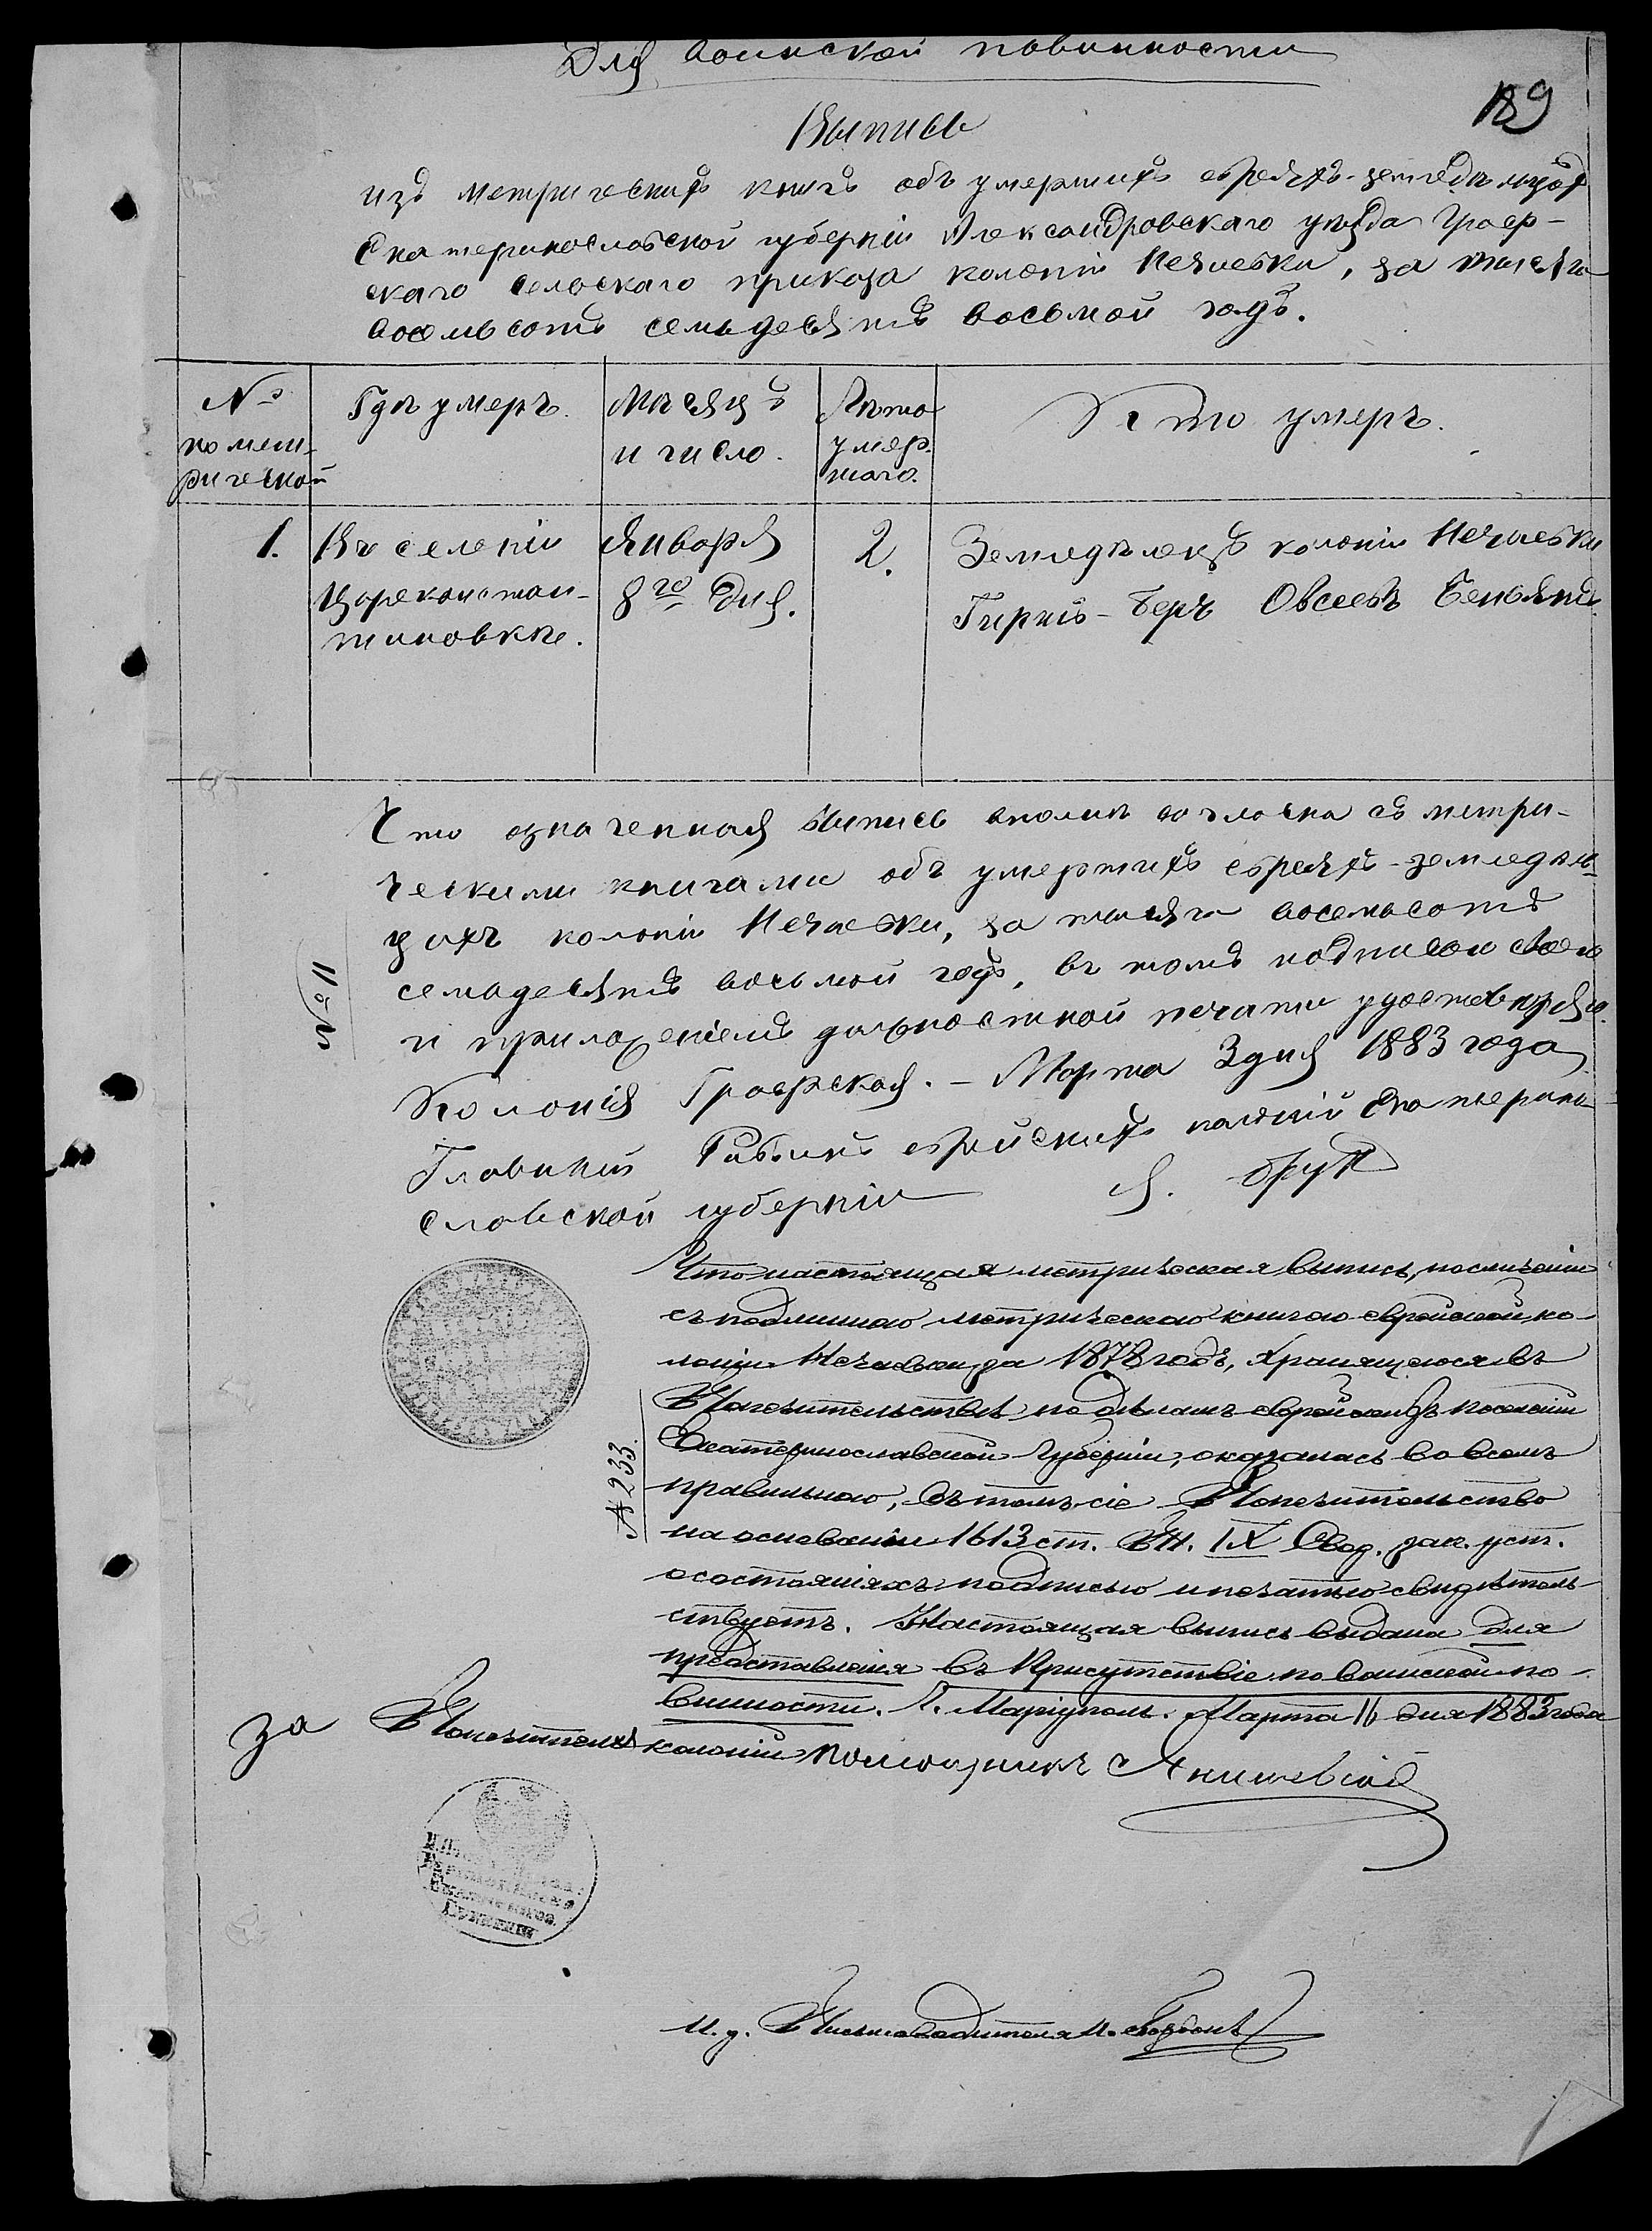 Для воинской повинности
189
Выпись
изъ метрическихъ книгъ объ умершихъ евреяхъ-земледѣльцахъ
Екатеринославской губерніи Александровскаго уѣзда Граф-
скаго сельскаго приказа колоніи Нечаевки, за тысяча
восемьсотъ семьдесятъ восьмой годъ.
№
по мет-
рической
Гдѣ умеръ.
Мѣсяцъ
и число.
Лѣта
умер-
шаго.
Кто умеръ.
1.
Въ селеніи
Цареконстан-
тиновкѣ.
Января
8го дня.
2.
Земледѣлецъ колоніи Нечаевки
Гиршъ-Беръ Овсеевъ
Что означенная выпись вполнѣ согласна съ метри-
ческими книгами объ умершихъ евреяхъ-земледѣль-
цахъ колоніи Нечаевки, за тысяча восемьсотъ
семьдесятъ восьмой годъ, въ томъ подписью своею
и приложеніемъ должностной печати удостовѣряю.
Колонія Графская. – Марта 3 дня 1883 года
Главный Раввинъ еврейскихъ колоній Екатерино-
славской губерніи
№ 11
Что настоящая метрическая выпись, по сличеніи
съ подлинною метрическою книгою еврейской ко-
лоніи Нечаевки за 1878 годъ, хранящеюся въ
Попечительствѣ по дѣламъ еврейскихъ поселеній
Екатеринославской Губерніи, оказалась во всемъ
правильною, въ томъ сіе Попечительство
на основаніи 1613 ст. IX Свод. зак. уст.
о состояніяхъ подписью и печатью свидѣтель-
ствуетъ. Настоящая выпись выдана для
представленія въ Присутствіе по воинской по-
винности. Г. Маріуполь. Марта 11 дня 1883 года
№ 233.
За Попечителя колоній помощникъ
И. д. Письмоводителя